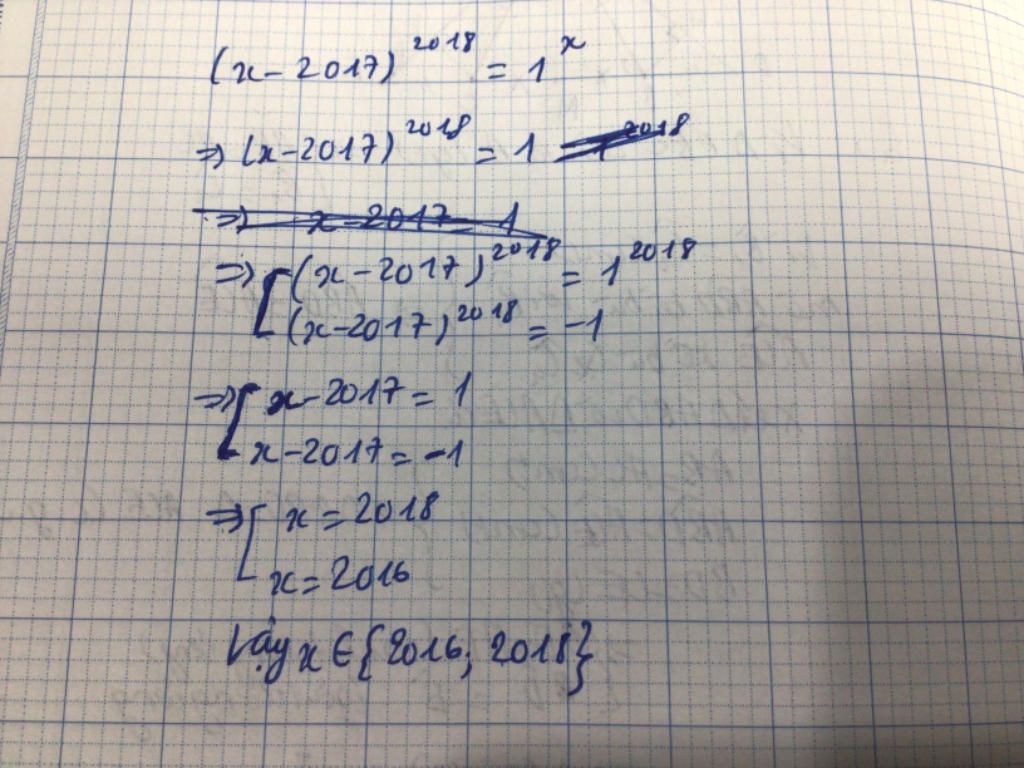 (x - 2017)^2018 = 1^x
⇒ (x - 2017)^2018 = 1
⇒ x - 2017 = 1
⇒ [ (x - 2017)^2018 = 1^2018
(x - 2017)^2018 = -1
⇒ [ x - 2017 = 1
x - 2017 = -1
⇒ [ x = 2018
x = 2016
Vậy x ∈ {2016; 2018}